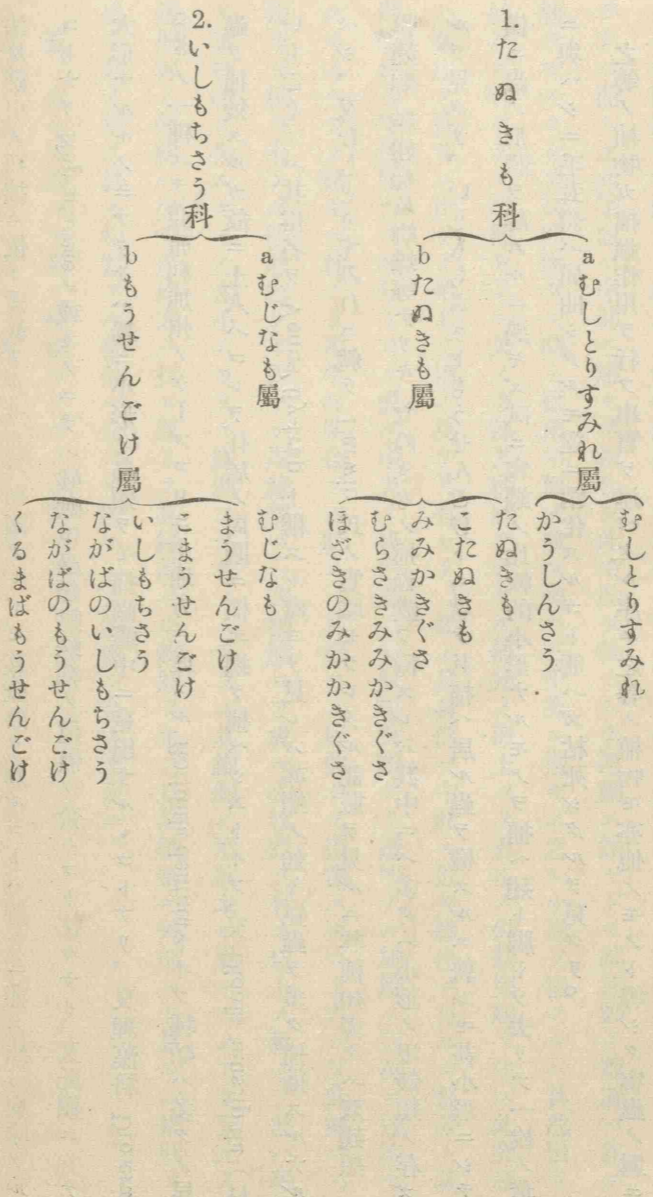 1. たぬきも科
a むしとりすみれ屬
むしとりすみれ
かうしんさう
b たぬきも屬
たぬきも
こたぬきも
みみかきぐさ
むらさきみみかきぐさ
ほざきのみかかきぐさ
2. いしもちさう科
a むじなも屬
むじなも
b もうせんごけ屬
まうせんごけ
こまうせんごけ
いしもちさう
ながばのいしもちさう
ながばのもうせんごけ
くるまばもうせんごけ